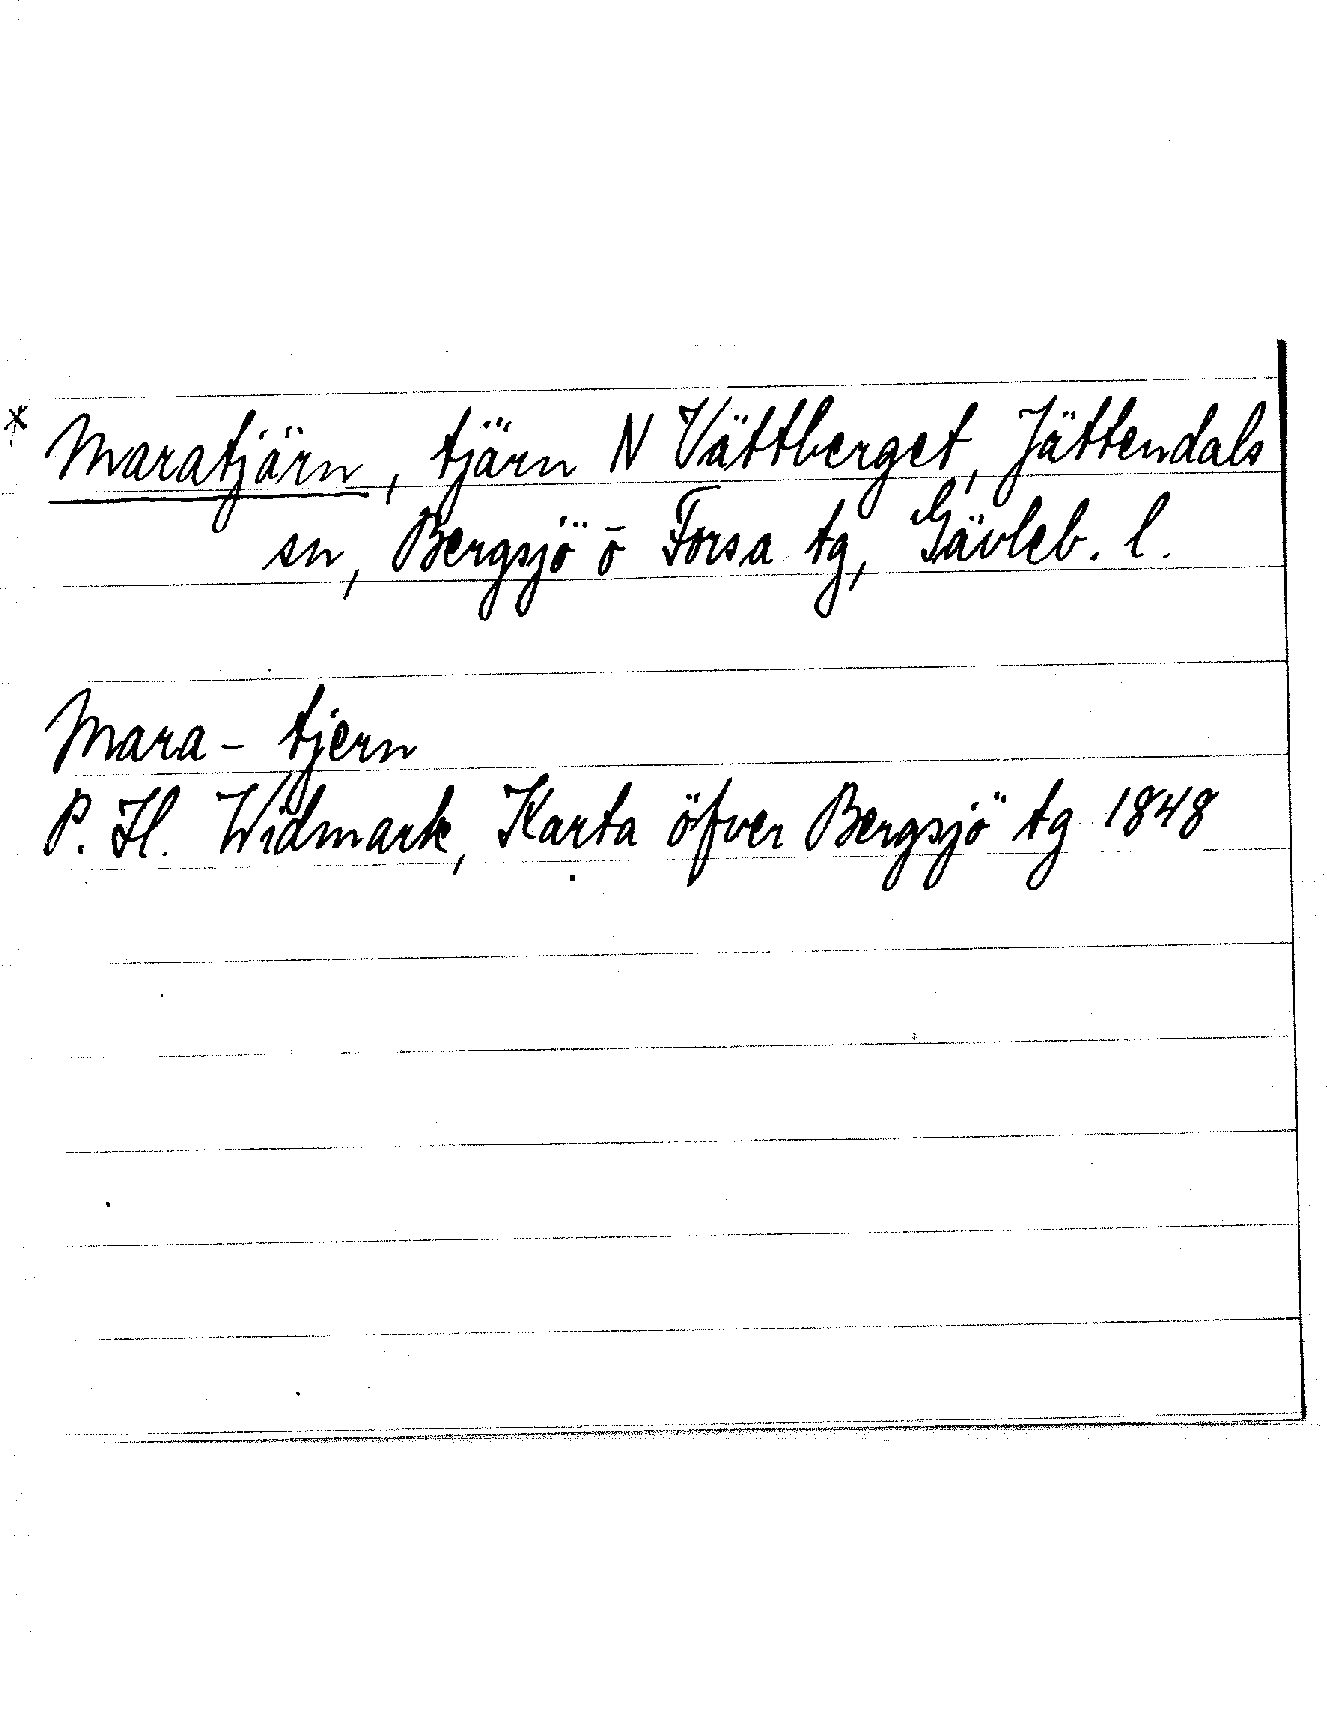 * Maratjärn, tjärn N Vättberget, Jättendals
sn, Bergsjö o Forsa tg, Gävleb. l.
Mara-tjern
P. H. Widmark, Karta öfver Bergsjö tg 1848